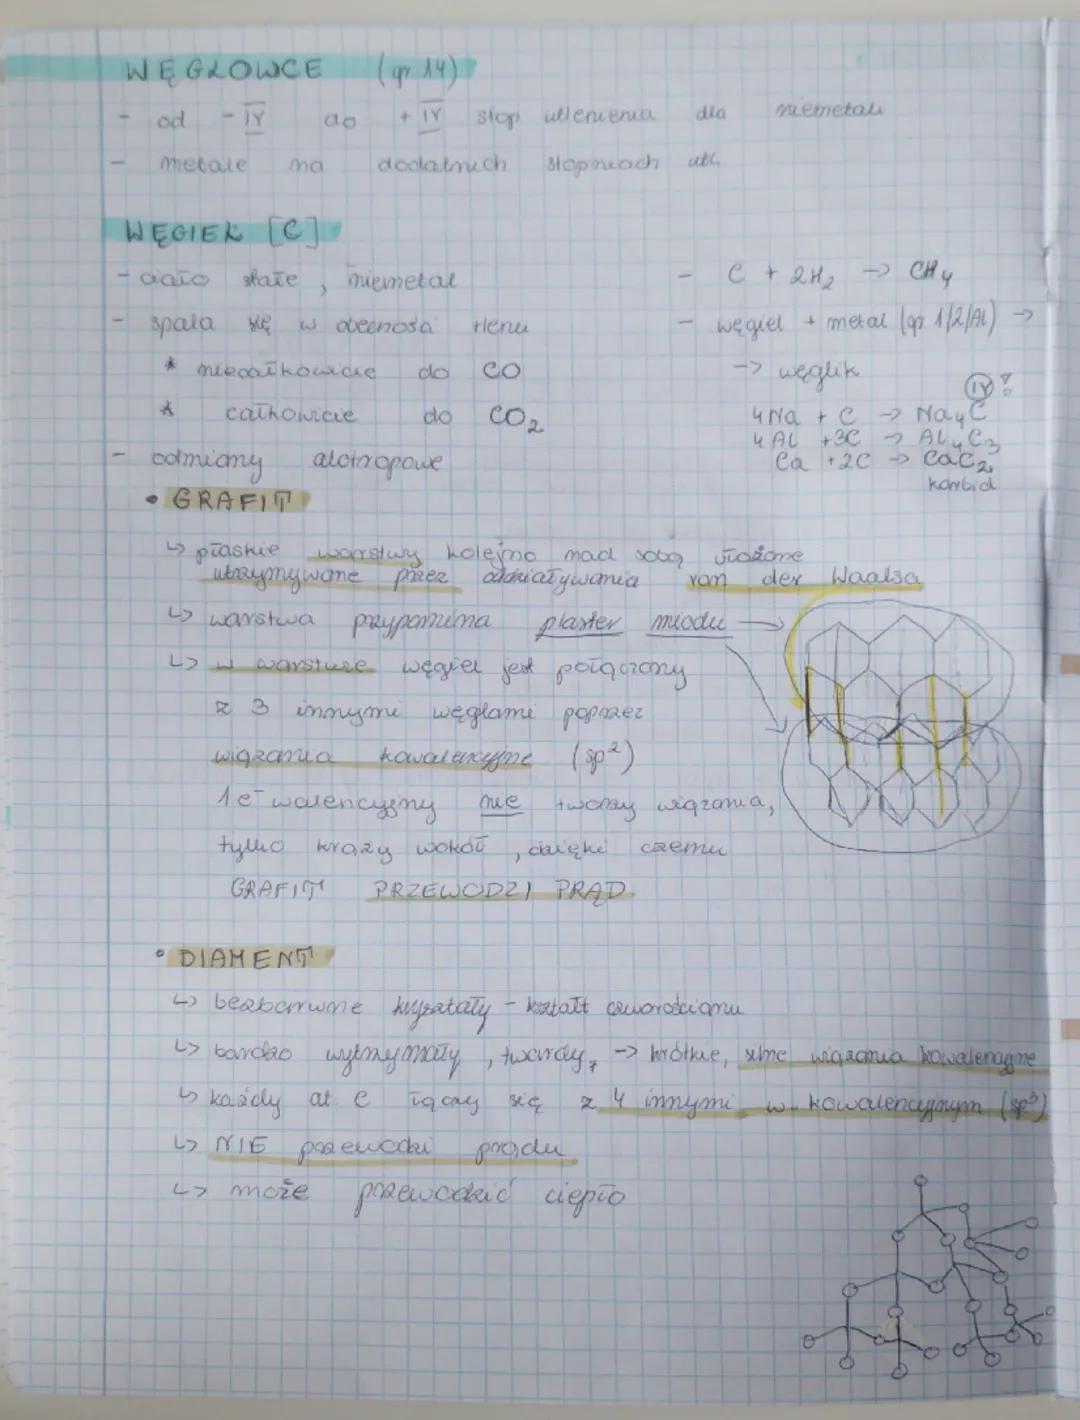 WĘGLOWCE (gr 14)
- od -IV do +IV stop utlenienia dla niemetali
- metale na dodatnich stopniach utl.
WĘGIEL [C]
- ciało stałe, niemetal
- spala się w obecności tlenu
* niecałkowicie do CO
* całkowicie do CO2
- odmiany alotropowe
- C + 2H2 → CH4
- węgiel + metal (gr 1/2/Al) →
→ węglik
IV ?
4Na + C → Na4C
4Al + 3C → Al4C3
Ca + 2C → CaC2
karbid
• GRAFIT
↳ płaskie warstwy kolejno nad sobą ułożone
utrzymywane przez oddziaływania van der Waalsa
↳ warstwa przypomina plaster miodu →
↳ w warstwie węgiel jest połączony
z 3 innymi węglami poprzez
wiązania kowalencyjne (sp2)
1e- walencyjny nie tworzy wiązania,
tylko krąży wokół, dzięki czemu
GRAFIT PRZEWODZI PRĄD
• DIAMENT
↳ bezbarwne kryształy - kształt czworościanu
↳ bardzo wytrzymały, twardy, → krótkie, silne wiązania kowalencyjne
↳ każdy at. C łączy się z 4 innymi w. kowalencyjnym (sp3)
↳ NIE przewodzi prądu
↳ może przewodzić ciepło